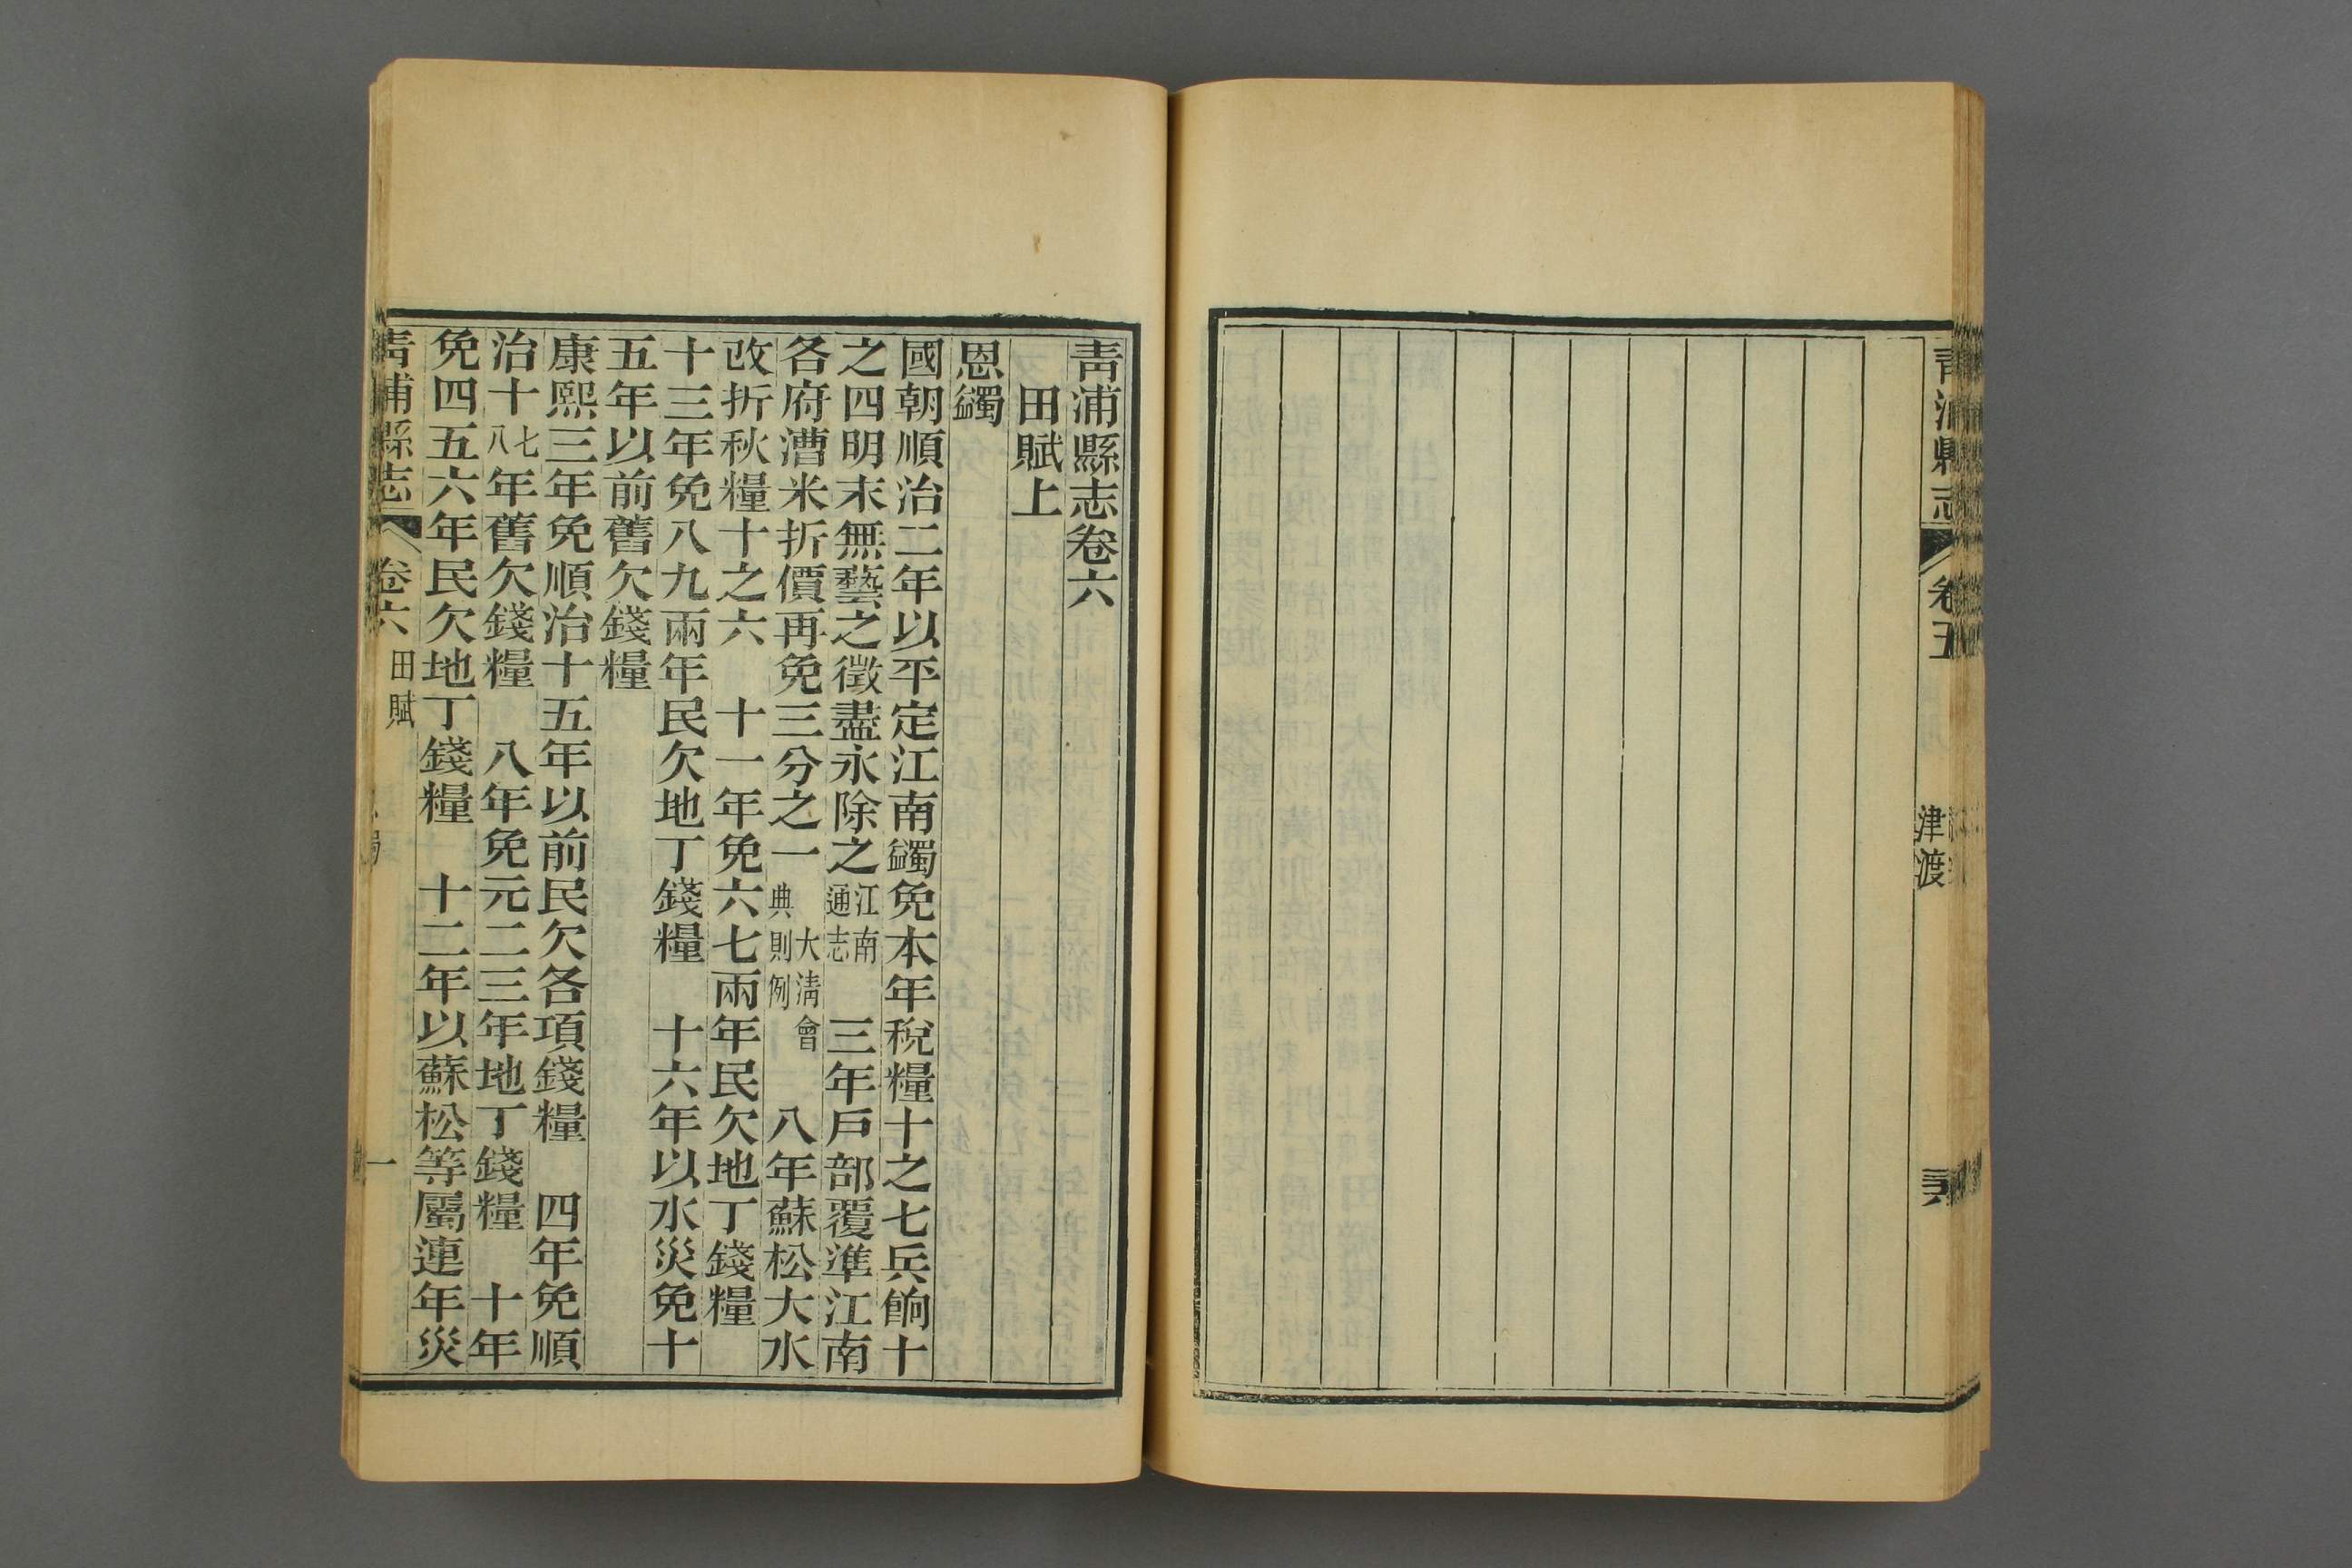 青浦縣志
卷五
津渡
青浦縣志卷六
田賦上
恩蠲
國朝順治二年以平定江南蠲免本年稅糧十之七兵餉十
之四明末無藝之徵盡永除之江南通志　三年戶部覆準江南
各府漕米折價再免三分之一大清會典則例　八年蘇松大水
改折秋糧十之六　十一年免六七兩年民欠地丁錢糧
十三年免八九兩年民欠地丁錢糧　十六年以水災免十
五年以前舊欠錢糧
康熙三年免順治十五年以前民欠各項錢糧　四年免順
治十七八年舊欠錢糧　八年免元二三年地丁錢糧　十年
免四五六年民欠地丁錢糧　十二年以蘇松等屬連年災
青浦縣志
卷六
田賦
一